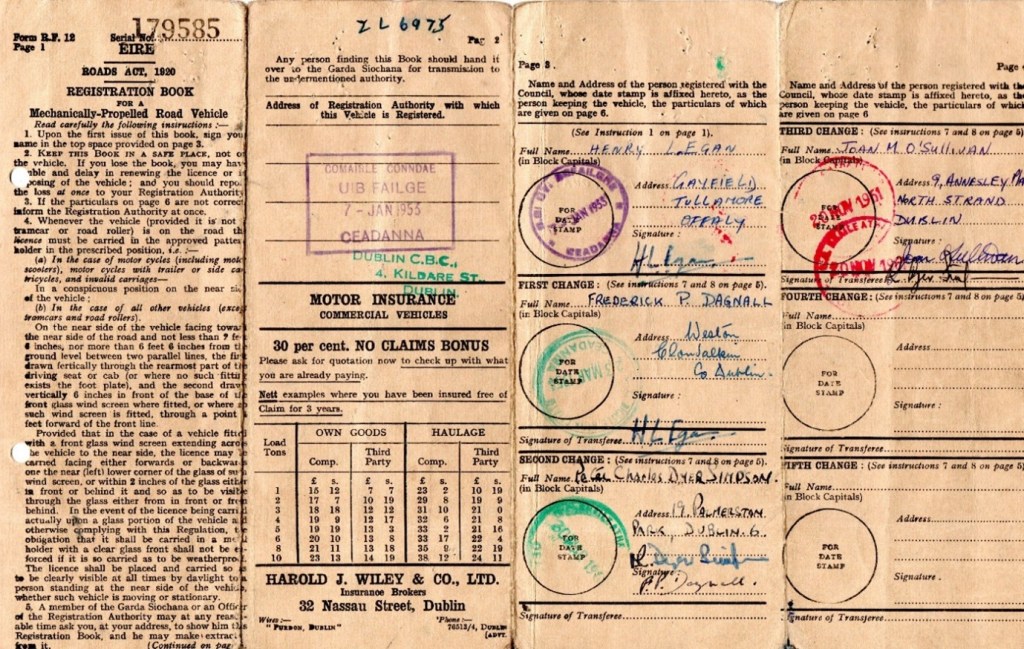 Form R.F. 12
Page 1
Serial No. 179585
EIRE
ROADS ACT, 1920
REGISTRATION BOOK
FOR A
Mechanically-Propelled Road Vehicle
Read carefully the following instructions :—
1. Upon the first issue of this book, sign you
name in the top space provided on page 3.
2. KEEP THIS BOOK IN A SAFE PLACE, not o
the vehicle. If you lose the book, you may hav
ble and delay in renewing the licence or i
posing of the vehicle; and you should repo
the loss at once to your Registration Authority
3. If the particulars on page 6 are not correct
inform the Registration Authority at once.
4. Whenever the vehicle (provided it is not
tramcar or road roller) is on the road th
licence must be carried in the approved patte
holder in the prescribed position, i.e. :—
(a) In the case of motor cycles (including moto
scooters), motor cycles with trailer or side ca
tricycles, and invalid carriages—
In a conspicuous position on the near side
of the vehicle ;
(b) In the case of all other vehicles (excep
tramcars and road rollers).
On the near side of the vehicle facing towar
the near side of the road and not less than 2 fee
6 inches, nor more than 6 feet 6 inches from the
ground level between two parallel lines, the firs
drawn fertically through the rearmost part of th
driving seat or cab (or where no such fittin
exists the foot plate), and the second draw
vertically 6 inches in front of the base of th
front glass wind screen where fitted, or where no
such wind screen is fitted, through a point
feet forward of the front line.
Provided that in the case of a vehicle fitte
with a front glass wind screen extending acro
the vehicle to the near side, the licence may
carried facing either forwards or backwar
one the near (left) lower corner of the glass of
wind screen, or within 2 inches of the glass eithe
in front or behind it and so as to be visib
through the glass either from in front or fro
behind. In the event of the licence being carri
actually upon a glass portion of the vehicle a
otherwise complying with this Regulation, t
obigation that it shall be carried in a
holder with a clear glass front shall not be
forced if it is so carried as to be weatherproo
The licence shall be placed and carried so
to be clearly visible at all times by daylight to
person standing at the near side of the vehic
whether such vehicle is moving or stationary.
5. A member of the Garda Siochana or an Offic
of the Registration Authority may at any reas
able time ask you, at your address, to show him th
Registration Book, and he may make extrac
from it. (Continued on page
ZL 6975
Pag 2
Any person finding this Book should hand it
over to the Garda Siochana for transmission to
the undermentioned authority.
Address of Registration Authority with which
this Vehicle is Registered.
COMAIRLE CONNDAE
UIB FAILGE
7 - JAN 1953
CEADANNA
DUBLIN C.B.C.,
4. KILDARE ST.
DUBLIN.
MOTOR INSURANCE
COMMERCIAL VEHICLES
30 per cent. NO CLAIMS BONUS
Please ask for quotation now to check up with what
you are already paying.
Nett examples where you have been insured free of
Claim for 3 years.
Load Tons OWN GOODS HAULAGE
Comp. Third Party Comp. Third Party
£ s. £ s. £ s. £ s.
1 15 12 7 7 23 2 10 19
2 17 7 10 19 29 8 19 9
3 18 18 12 12 31 10 21 0
4 19 9 12 17 32 6 21 8
5 19 19 13 3 33 2 21 16
6 20 10 13 8 33 17 22 4
8 21 11 13 18 35 9 22 19
10 23 13 14 19 38 17 24 11
HAROLD J. WILEY & CO., LTD.
Insurance Brokers
32 Nassau Street, Dublin
Wires :— 'Phone :—
"PURDON, DUBLIN" 76512/4, DUBLIN
(ADVT.
Page 3.
Name and Address of the person registered with the
Council, whose date stamp is affixed hereto, as the
person keeping the vehicle, the particulars of which
are given on page 6.
(See Instruction 1 on page 1).
Full Name HENRY L. EGAN
(in Block Capitals)
Address GAYFIELD
TULLAMORE
OFFALY
FOR DATE STAMP
JAN 1953
CEADANNA
Signature :
H L Egan
FIRST CHANGE : (See instructions 7 and 8 on page 5).
Full Name FREDERICK P. DAGNALL
(in Block Capitals)
Address Weston
Clondalkin
Co Dublin.
FOR DATE STAMP
Signature :
H L Egan
Signature of Transferee
SECOND CHANGE : (See instructions 7 and 8 on page 5).
Full Name PETER CHARLES DYER SIMPSON.
(in Block Capitals)
Address 19. PALMERSTON
PARK, DUBLIN. 6.
FOR DATE STAMP
Dyer Simpson
Signature
F.P. Dagnall.
Signature of Transferee
Page
Name and Address of the person registered with the
Council, whose date stamp is affixed hereto, as the
person keeping the vehicle, the particulars of which
are given on page 6
THIRD CHANGE : (See instructions 7 and 8 on page 5)
Full Name JOAN. M O'SULLIVAN
(in Block Capitals)
Address 9, ANNESLEY
NORTH STRAND
DUBLIN
FOR DATE STAMP
NOV 1961
20 NOV 196
Signature :
Joan O'Sullivan
Signature of Transferee
FOURTH CHANGE : (See instructions 7 and 8 on page 5)
Full Name
(in Block Capitals)
Address
FOR DATE STAMP
Signature :
Signature of Transferee
FIFTH CHANGE : (See instructions 7 and 8 on page 5)
Full Name
(in Block Capitals)
Address
FOR DATE STAMP
Signature .
Signature of Transferee